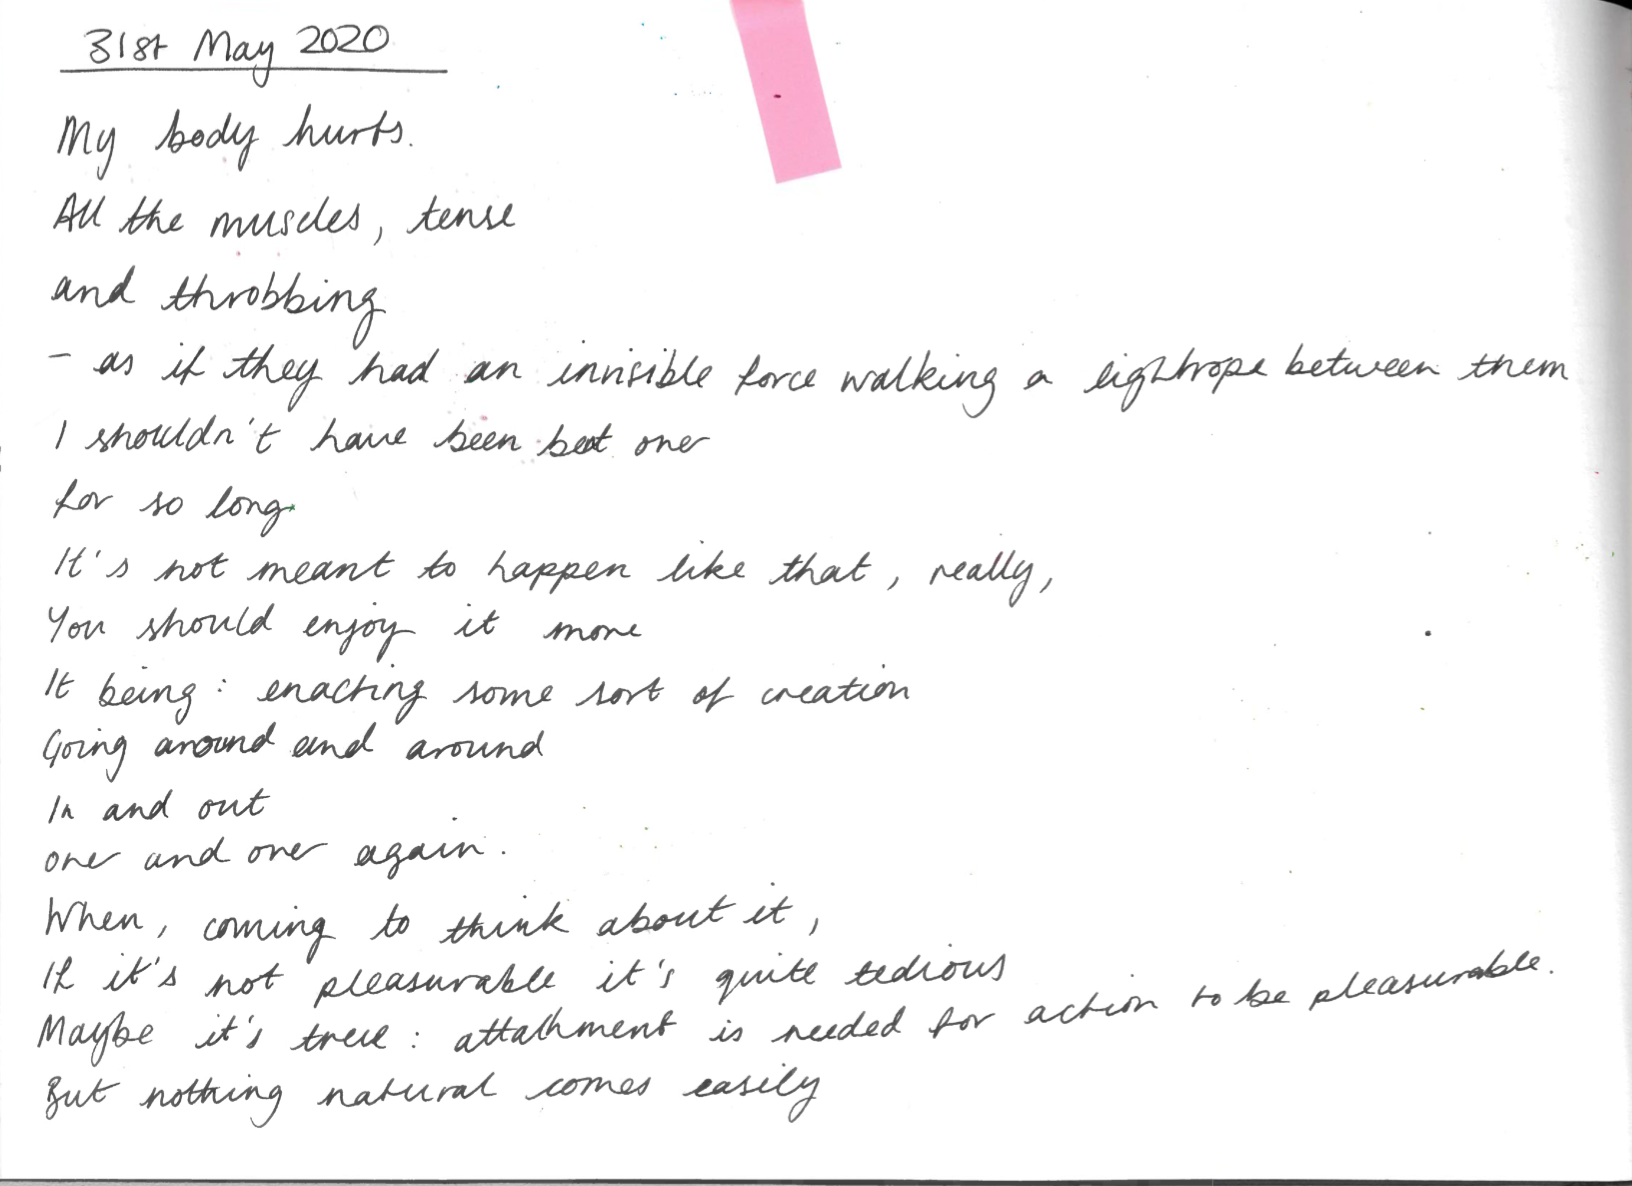 31st May 2020
My body hurts.
All the muscles, tense
and throbbing
– as if they had an invisible force walking a tightrope between them
I shouldn't have been bent over
for so long.
It's not meant to happen like that, really,
You should enjoy it more
It being: enacting some sort of creation
Going around and around
In and out
over and over again.
When, coming to think about it,
If it's not pleasurable it's quite tedious
Maybe it's true: attathment is needed for action to be pleasurable.
But nothing natural comes easily